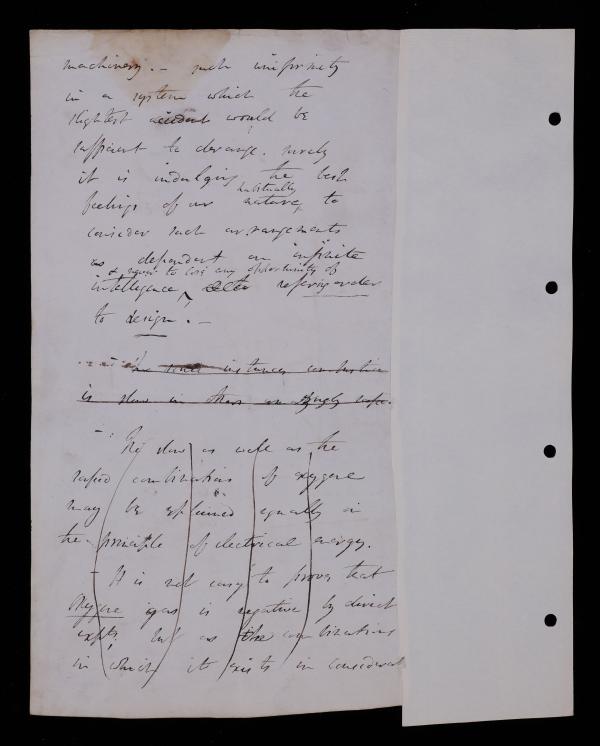 machinery. – such uniformity
in a system which the
slightest accident would be
sufficient to derange. surely
it is indulging the best
habitually
feelings of our nature, to
consider such arrangements
as dependent on infinite
& never to lose any opportunity of
intelligence, referring order
to design. –
– In some instances combustion
is slow in others exceedingly rapid.
– The slow as well as the
rapid combinations of oxygene
may be explained equally on
the principle of electrical energy.
– It is not easy to prove that
Oxygene gas is negative by direct
expts, but as the combinations
in which it exists in considerable